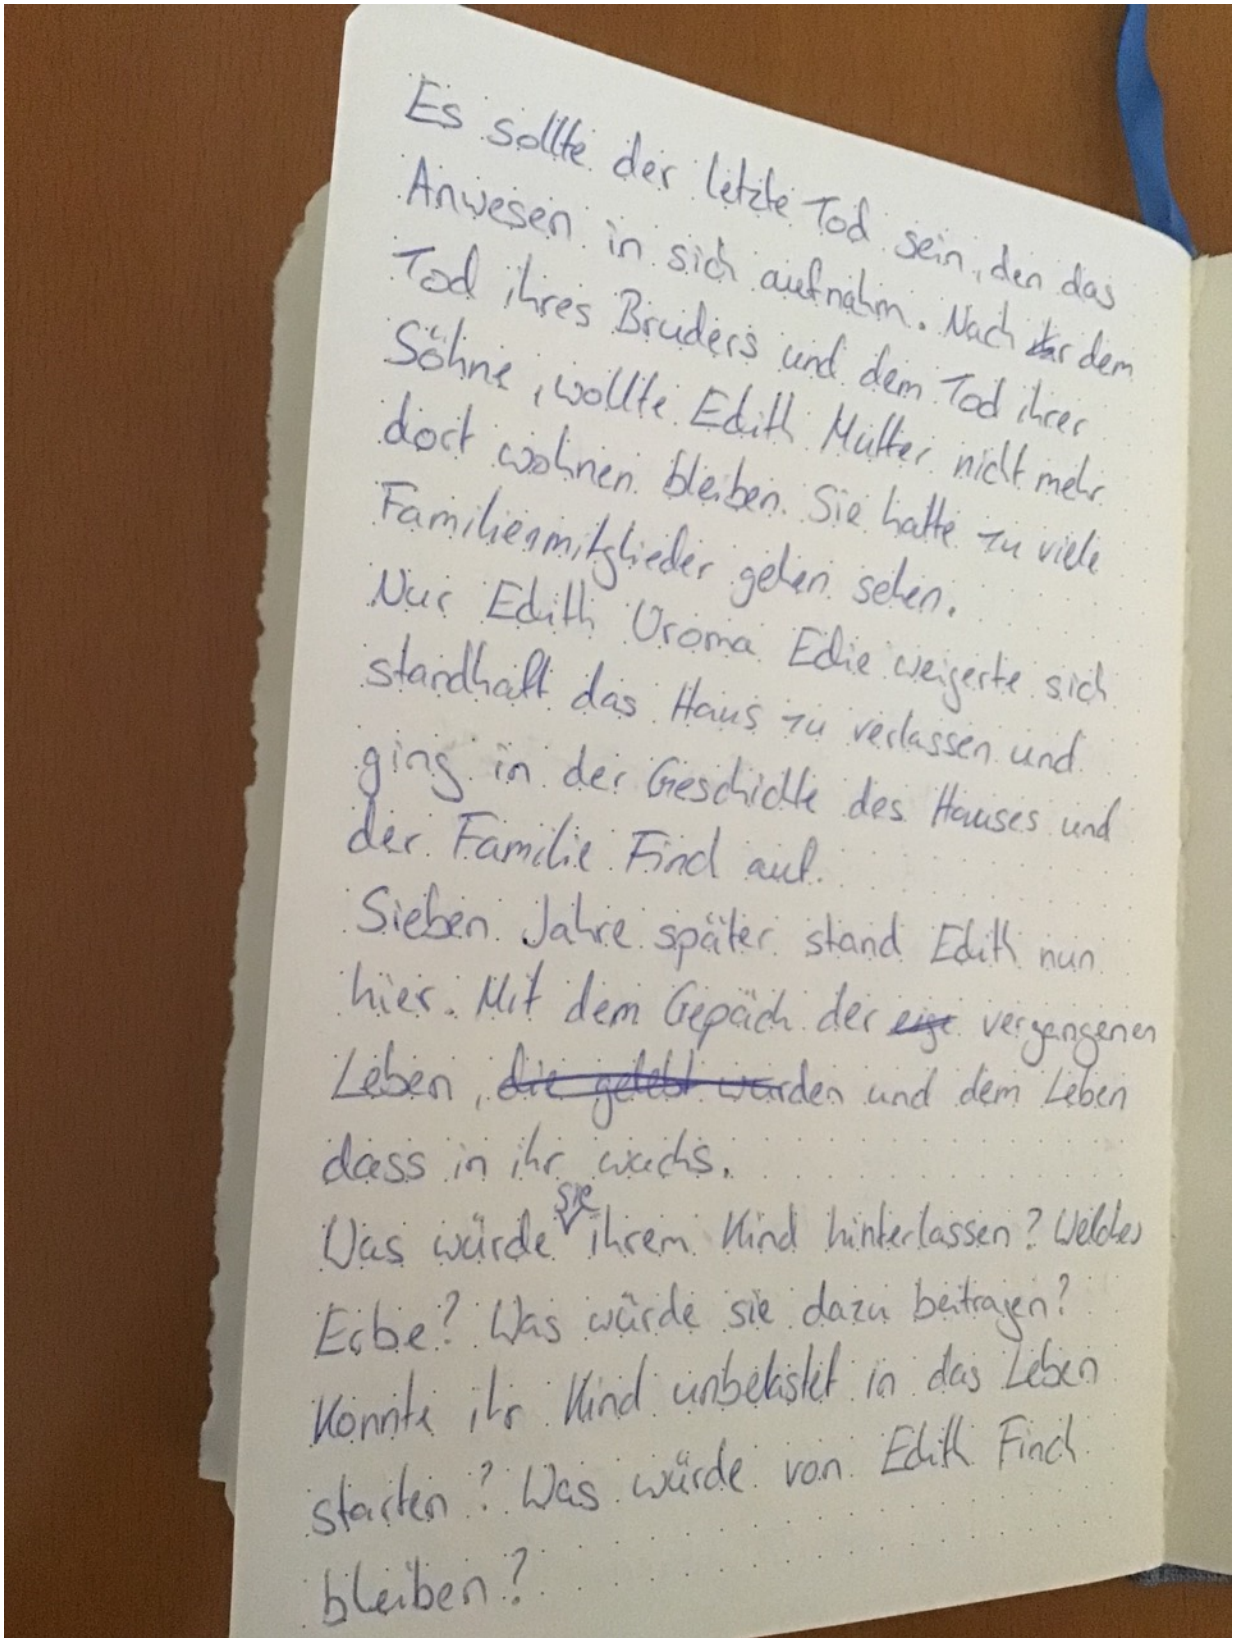 Es sollte der letzte Tod sein, den das
Anwesen in sich aufnahm. Nach der dem
Tod ihres Bruders und dem Tod ihrer
Söhne, wollte Edith Mutter nicht mehr
dort wohnen bleiben. Sie hatte zu viele
Familienmitglieder gehen sehen.
Nur Edith Uroma Edie weigerte sich
standhaft das Haus zu verlassen und
ging in der Geschichte des Hauses und
der Familie Finch auf.
Sieben Jahre später stand Edith nun
hier. Mit dem Gepäck der vergangenen
Leben, die gelebt wurden und dem Leben
dass in ihr wuchs.
Was würde sie ihrem Kind hinterlassen? Welches
Erbe? Was würde sie dazu beitragen?
Konnte ihr Kind unbelastet in das Leben
starten? Was würde von Edith Finch
bleiben?